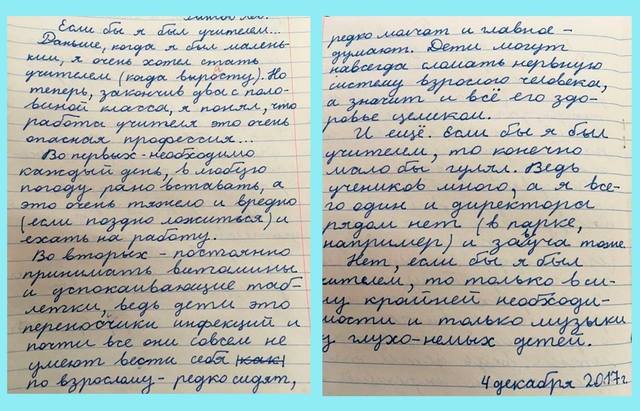 Если бы я был учителем...
Даньше, когда я был малень-
ким, я очень хотел стать
учителем (когда вырасту). Но
теперь, закончив два с поло-
виной класса, я понял, что
работа учителя это очень
опасная профессия...
Во первых - необходимо
каждый день, в любую
погоду рано вставать, а
это очень тяжело и вредно
(если поздно ложиться) и
ехать на работу.
Во вторых - постоянно
принимать витамины
и успокаивающие таб-
летки, ведь дети это
переносчики инфекций и
почти все они совсем не
умеют вести себя как
по взрослому - редко сидят,
редко молчат и главное -
думают. Дети могут
навсегда сломать нервную
систему взрослого человека,
а значит и всё его здо-
ровье целиком.
И ещё. Если бы я был
учителем, то конечно
мало бы гулял. Ведь
учеников много, а я все-
го один и директора
рядом нет (в парке,
например) и завуча тоже.
Нет, если бы я был
учителем, то только в си-
лу крайней необходи-
мости и только музыки
у глухо-немых детей.
4 декабря 2017г